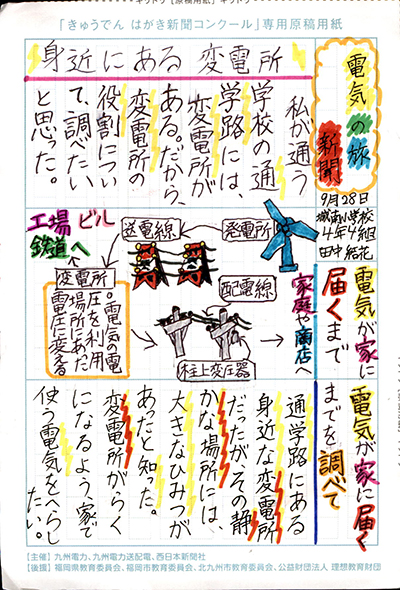 「きゅうでん はがき新聞コンクール」専用原稿用紙
電気の旅
新聞
9月28日
城南小学校
4年4組
電気が家に
届くまで
電気が家に届く
までを調べて
身近にある変電所
私が通う
学校の通
学路には、
変電所が
ある。だから、
変電所の
役割につい
て、調べたい
と思った。
発電所
送電線
変電所
。電気の電
圧を利用
場所にあた
電圧に変える
工場 ビル
鉄道へ
配電線
柱上変圧器
家庭や商店へ
通学路にある
身近な変電所
だったが、その静
かな場所には、
大きなひみつが
あったと知った。
変電所がらく
になるよう、家で
使う電気をへらし
たい。
【主催】九州電力、九州電力送配電、西日本新聞社
【後援】福岡県教育委員会、福岡市教育委員会、北九州市教育委員会、公益財団法人 理想教育財団